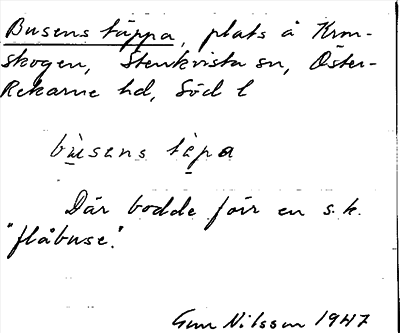 Busens täppa, plats å Kron-
skogen, Stenkvista sn, Öster-
Rekarne hd, Söd l
bùsens tèpa
Där bodde förr en s.k.
"flåbuse".
Gun Nilsson 1947